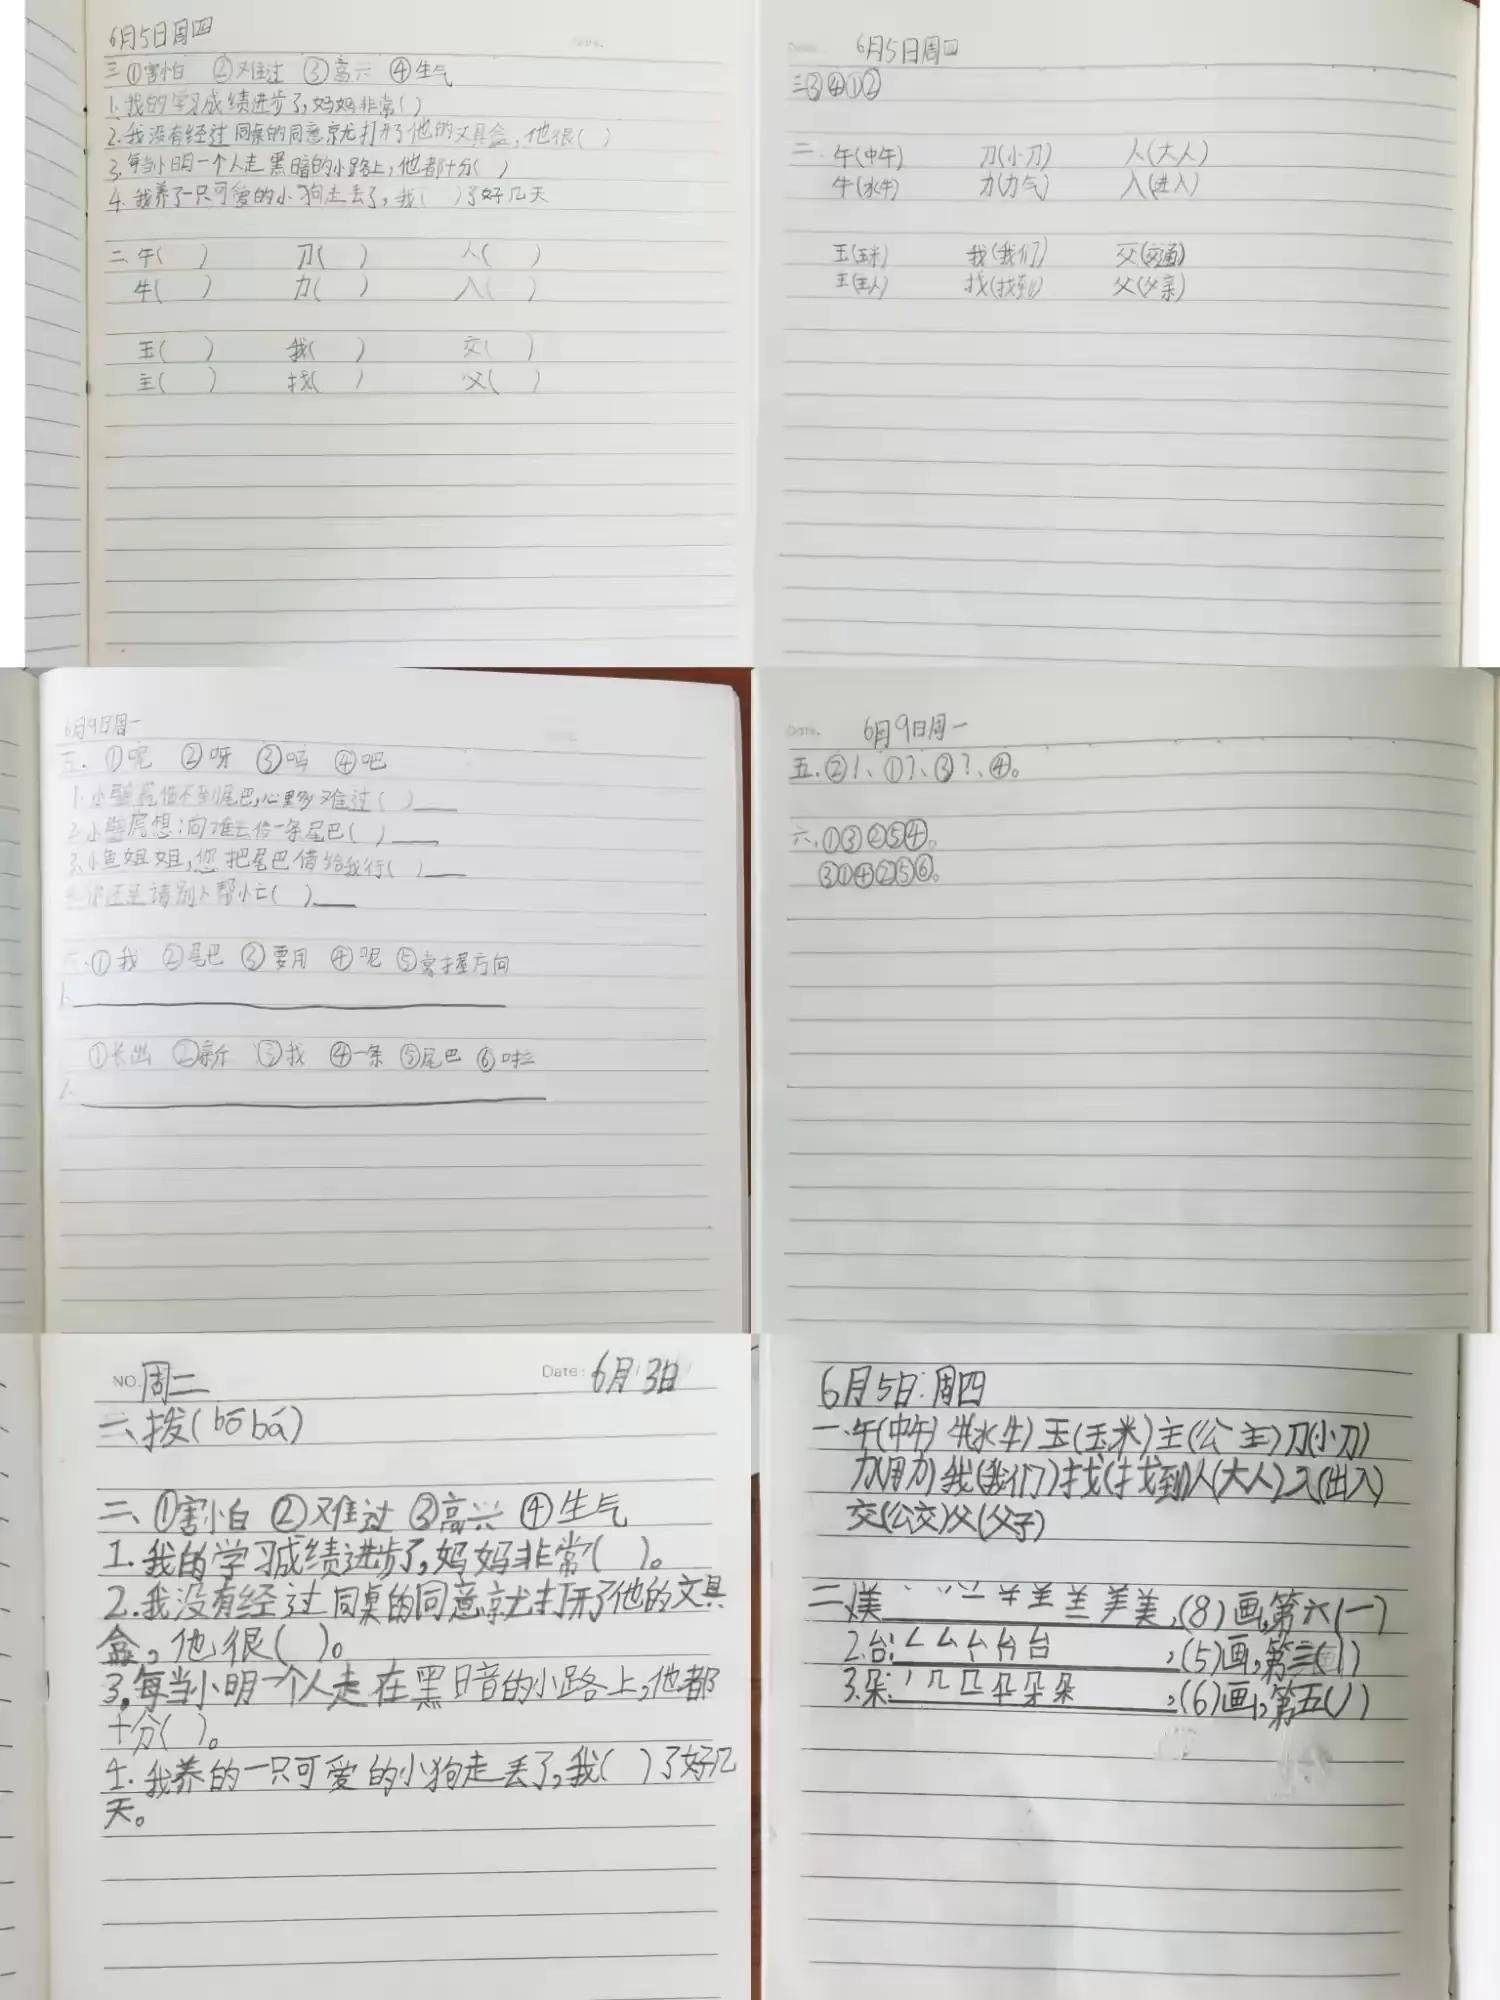 6月5日周四
三①害怕 ②难过 ③高兴 ④生气
1.我的学习成绩进步了,妈妈非常( )
2.我没有经过同桌的同意就打开了他的文具盒,他很( )
3.每当小明一个人走黑暗的小路上,他都十分( )
4.我养了一只可爱的小狗走丢了,我( )了好几天
二.午( ) 刀( ) 人( )
牛( ) 力( ) 入( )
玉( ) 我( ) 交( )
主( ) 找( ) 父( )
Date. 6月5日周四
三③④①②
二.午(中午) 刀(小刀) 人(大人)
牛(水牛) 力(力气) 入(进入)
玉(玉米) 我(我们) 交(交通)
主(主人) 找(找到) 父(父亲)
6月9日周一
五.①呢 ②呀 ③吗 ④吧
1.小壁虎借不到尾巴,心里多难过( )
2.小壁虎想:向谁去借一条尾巴( )
3.小鱼姐姐,您把尾巴借给我行( )
还是请别人帮忙( )
①我 ②尾巴 ③要用 ④呢 ⑤掌握方向
1.
①长出 ②新 ③我 ④一条 ⑤尾巴 ⑥啦
Date. 6月9日周一
五.②!、①?、③?、④。
六.①③②⑤④。
③①④②⑤⑥。
NO.周二 Date:6月3日
一、拨(bō bá)
二、①害怕 ②难过 ③高兴 ④生气
1.我的学习成绩进步了,妈妈非常( )。
2.我没有经过同桌的同意就打开了他的文具
盒,他很( )。
3.每当小明一个人走在黑暗的小路上,他都
十分( )。
4.我养的一只可爱的小狗走丢了,我( )了好几
天。
6月5日.周四
一.午(中午)牛(水牛)玉(玉米)主(公主)刀(小刀)
力(用力)我(我们)找(找到)人(大人)入(出入)
交(公交)父(父子)
二.美,(8)画,第六(一)
2.台:,(5)画,第三(丨)
3.朵:,(6)画,第五(丿)